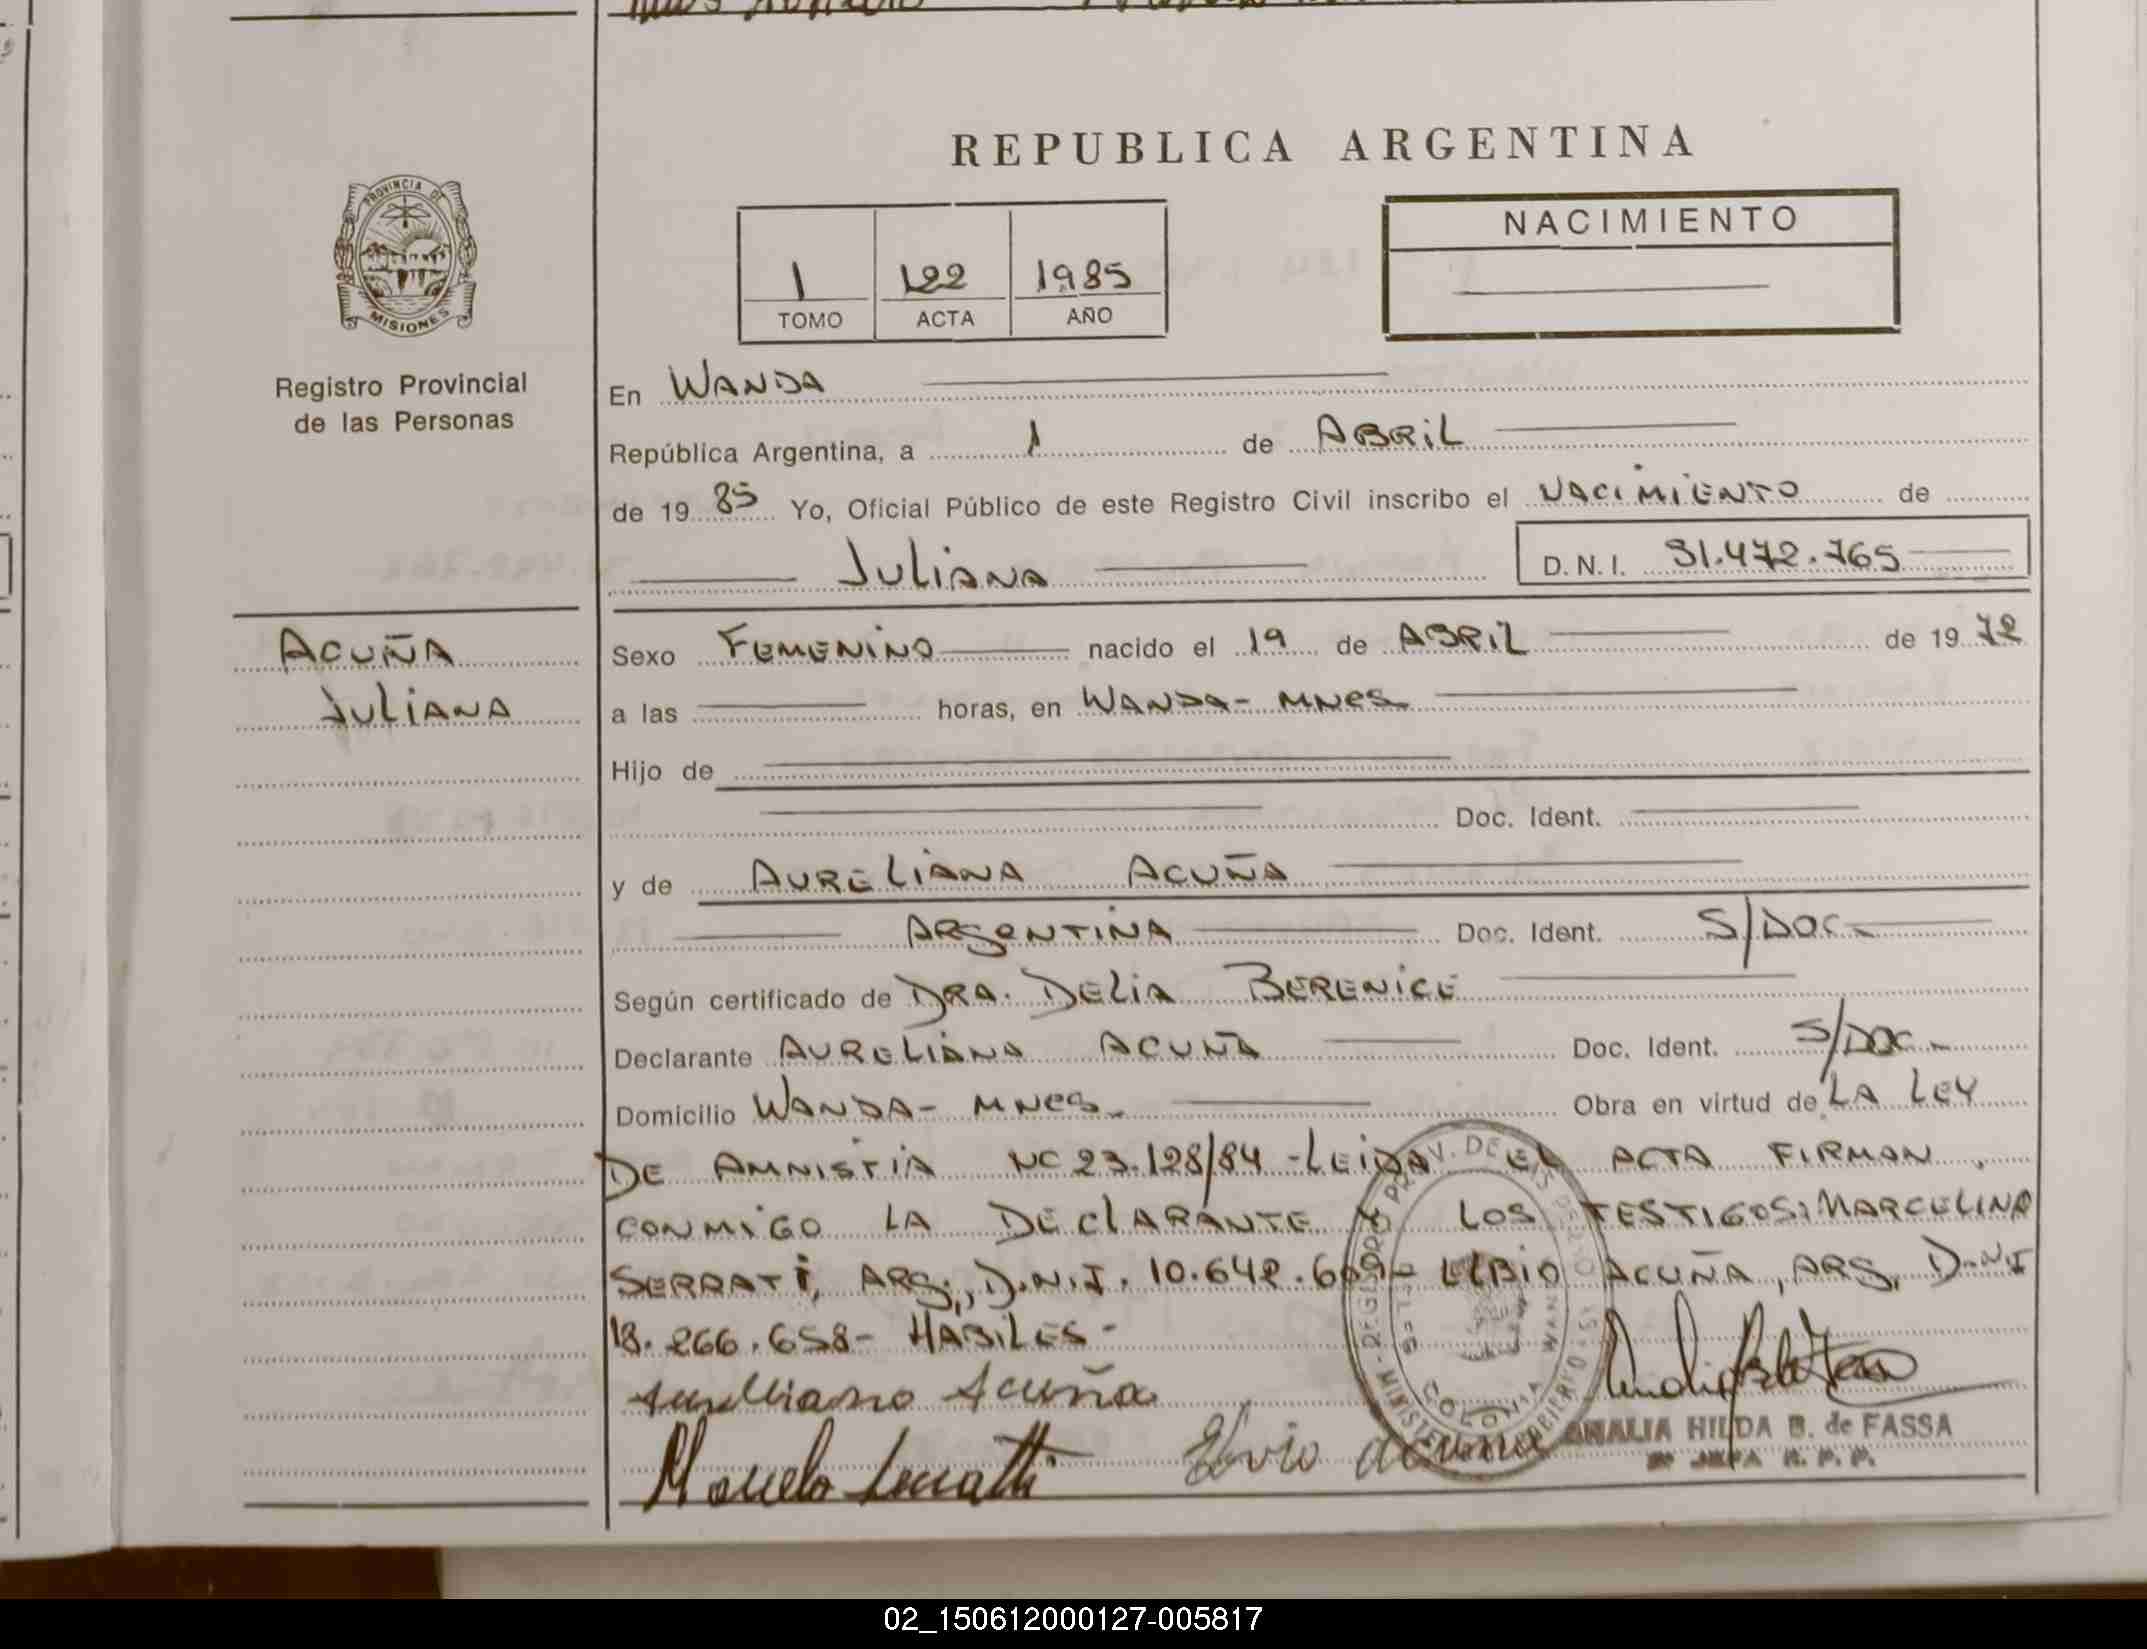 REPUBLICA ARGENTINA
PROVINCIA DE
MISIONES
Registro Provincial
de las Personas
NACIMIENTO
1 122 1985
TOMO ACTA AÑO
En WANDA
República Argentina, a 1 de ABRIL
de 19 85 Yo, Oficial Público de este Registro Civil inscribo el NACIMIENTO de
JULIANA D.N.I. 31.472.765
ACUÑA
JULIANA
Sexo FEMENINO nacido el 19 de ABRIL de 19 72
a las horas, en WANDA - MNES
Hijo de
Doc. Ident.
y de AURELIANA ACUÑA
ARGENTINA Doc. Ident. S/DOC-
Según certificado de DRA. DELIA BERENICE
Declarante AURELIANA ACUÑA Doc. Ident. S/DOC-
Domicilio WANDA - MNES. Obra en virtud de LA LEY
DE AMNISTIA Nº 23.128/84 - LEIDA EL ACTA FIRMAN
CONMIGO LA DECLARANTE Y LOS TESTIGOS: MARCELINO
SERRATI, ARG., D.N.I. 10.642.669- ELBIO ACUÑA, ARG, D.N.I
18.266.658- HABILES-
Aurelliano Acuña
Elvio acuña
ANALIA HILDA B. de FASSA
JEFA R. P. P.
COLONIA WANDA
02_150612000127-005817